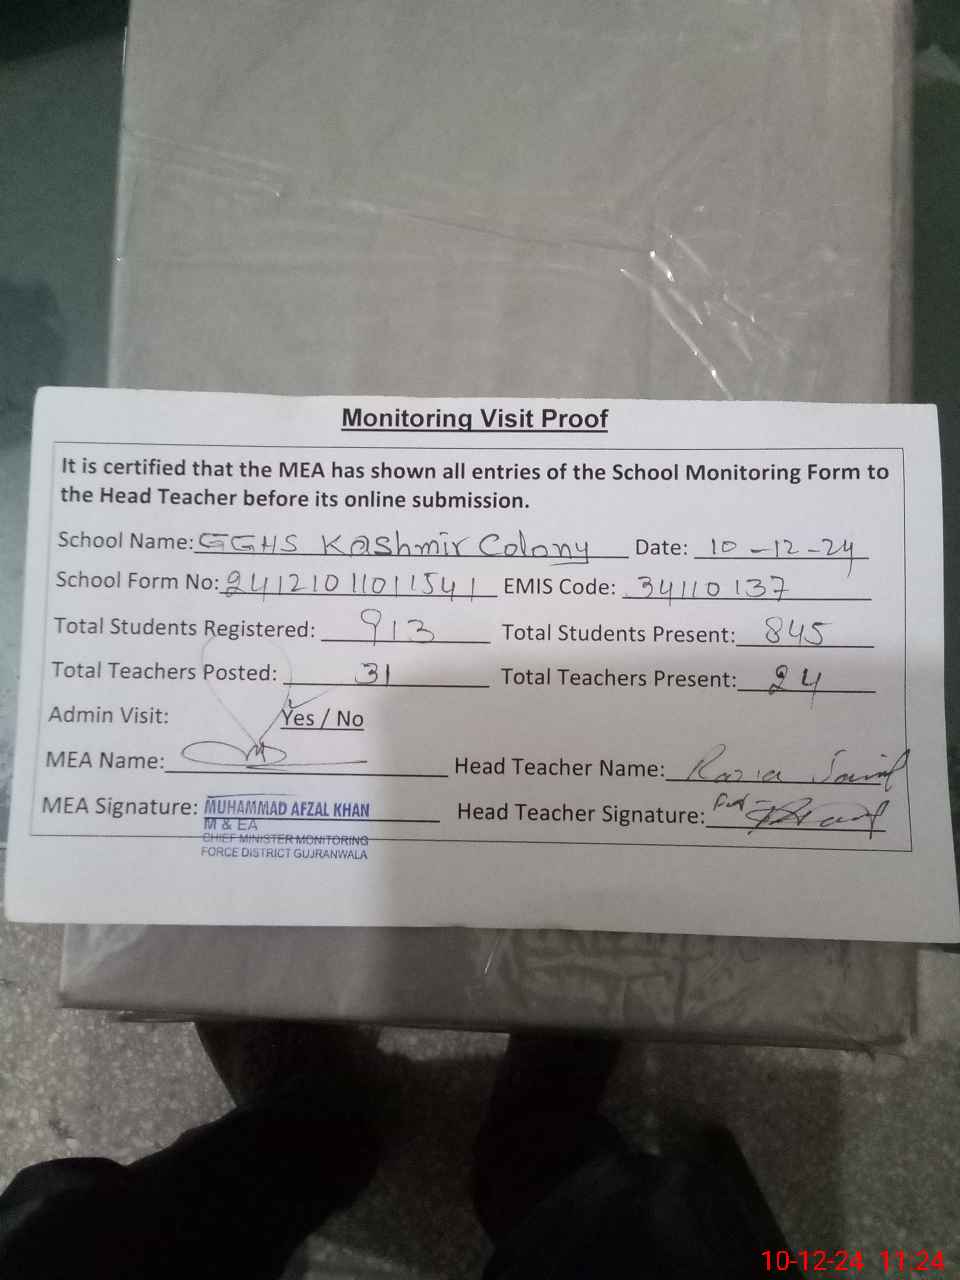 Monitoring Visit Proof
It is certified that the MEA has shown all entries of the School Monitoring Form to
the Head Teacher before its online submission.
School Name: GGHS Kashmir Colony Date: 10-12-24
School Form No: 2412101101541 EMIS Code: 34110137
Total Students Registered: 913 Total Students Present: 845
Total Teachers Posted: 31 Total Teachers Present: 24
Admin Visit: Yes / No
MEA Name: Head Teacher Name: Razia
MEA Signature: MUHAMMAD AFZAL KHAN Head Teacher Signature:
M & EA
CHIEF MINISTER MONITORING
FORCE DISTRICT GUJRANWALA
10-12-24 11:24